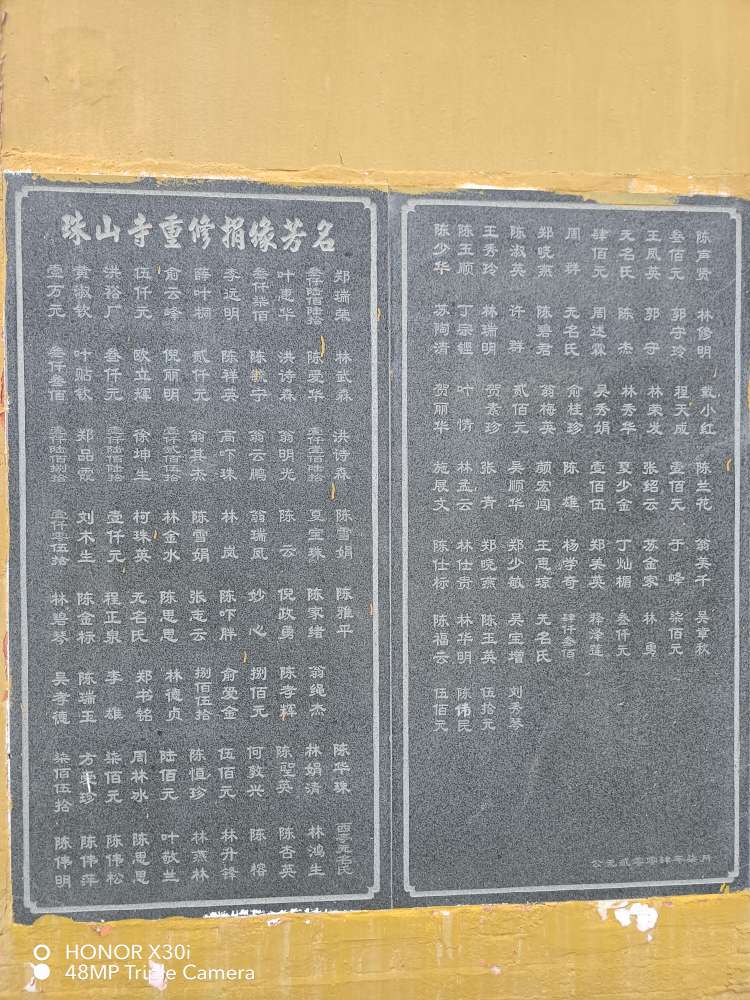 珠山寺重修捐缘芳名
壹万元 黄淑钦 洪裕厂 伍仟元 俞云峰 薛叶桐 李远明 叁仟柒佰 叶惠华 叁仟陆佰陆拾 郑瑞荣
叁仟叁佰 叶贴钦 叁仟元 欧立辉 倪丽明 贰仟元 陈祥英 陈守 洪诗森 陈爱华 林武森
壹仟陆佰捌拾 郑品霞 壹仟陆佰陆拾 徐坤生 壹仟贰佰伍拾 翁其杰 高吓珠 翁云鹏 翁明光 壹仟壹佰陆拾 洪诗森
壹仟零伍拾 刘木生 壹仟元 柯珠英 林金水 陈雪娟 林岚 翁瑞凤 陈云 夏宝珠 陈雪娟
林碧琴 陈金标 程正泉 无名氏 陈思思 张志云 陈吓胖 妙心 倪政勇 陈家绪 陈雅平
吴孝德 陈瑞玉 李雄 郑书铭 林德贞 捌佰伍拾 俞爱金 捌佰元 陈孝辉 翁绳杰
柒佰伍拾 方荣珍 柒佰元 周林冰 陆佰元 陈恒珍 伍佰元 何敦兴 陈聖英 林娟清 陈华珠
陈伟明 陈伟萍 陈伟松 陈思思 叶敬兰 林燕林 林升锋 陈榕 陈杏英 林鸿生 无名氏
陈少华 陈玉顺 王秀玲 陈淑英 郑晓燕 周群 肆佰元 无名氏 王凤英 叁佰元 陈芦贤
苏陶清 丁宗铿 林瑞明 许群 陈碧君 无名氏 周述霖 陈杰 郭守 郭守玲 林修明
贺丽华 叶情 贺素珍 贰佰元 翁梅英 俞桂珍 吴秀娟 林秀华 林荣发 程天成 戴小红
施展文 林孟云 张青 吴顺华 颜宏闯 陈雄 壹佰伍 夏少金 张绍云 壹佰元 陈兰花
陈仕标 林仕贵 郑晓燕 郑少敏 王惠琼 杨学奇 郑美英 丁灿楣 苏金家 于峰 翁英千
陈福云 林华明 陈玉英 吴宝增 无名氏 肆仟叁佰 释泽莲 叁仟元 林勇 柒佰元 吴章秋
伍佰元 陈伟民 伍拾元 刘秀琴
公元贰零零肆年柒月
HONOR X30i
48MP Triple Camera